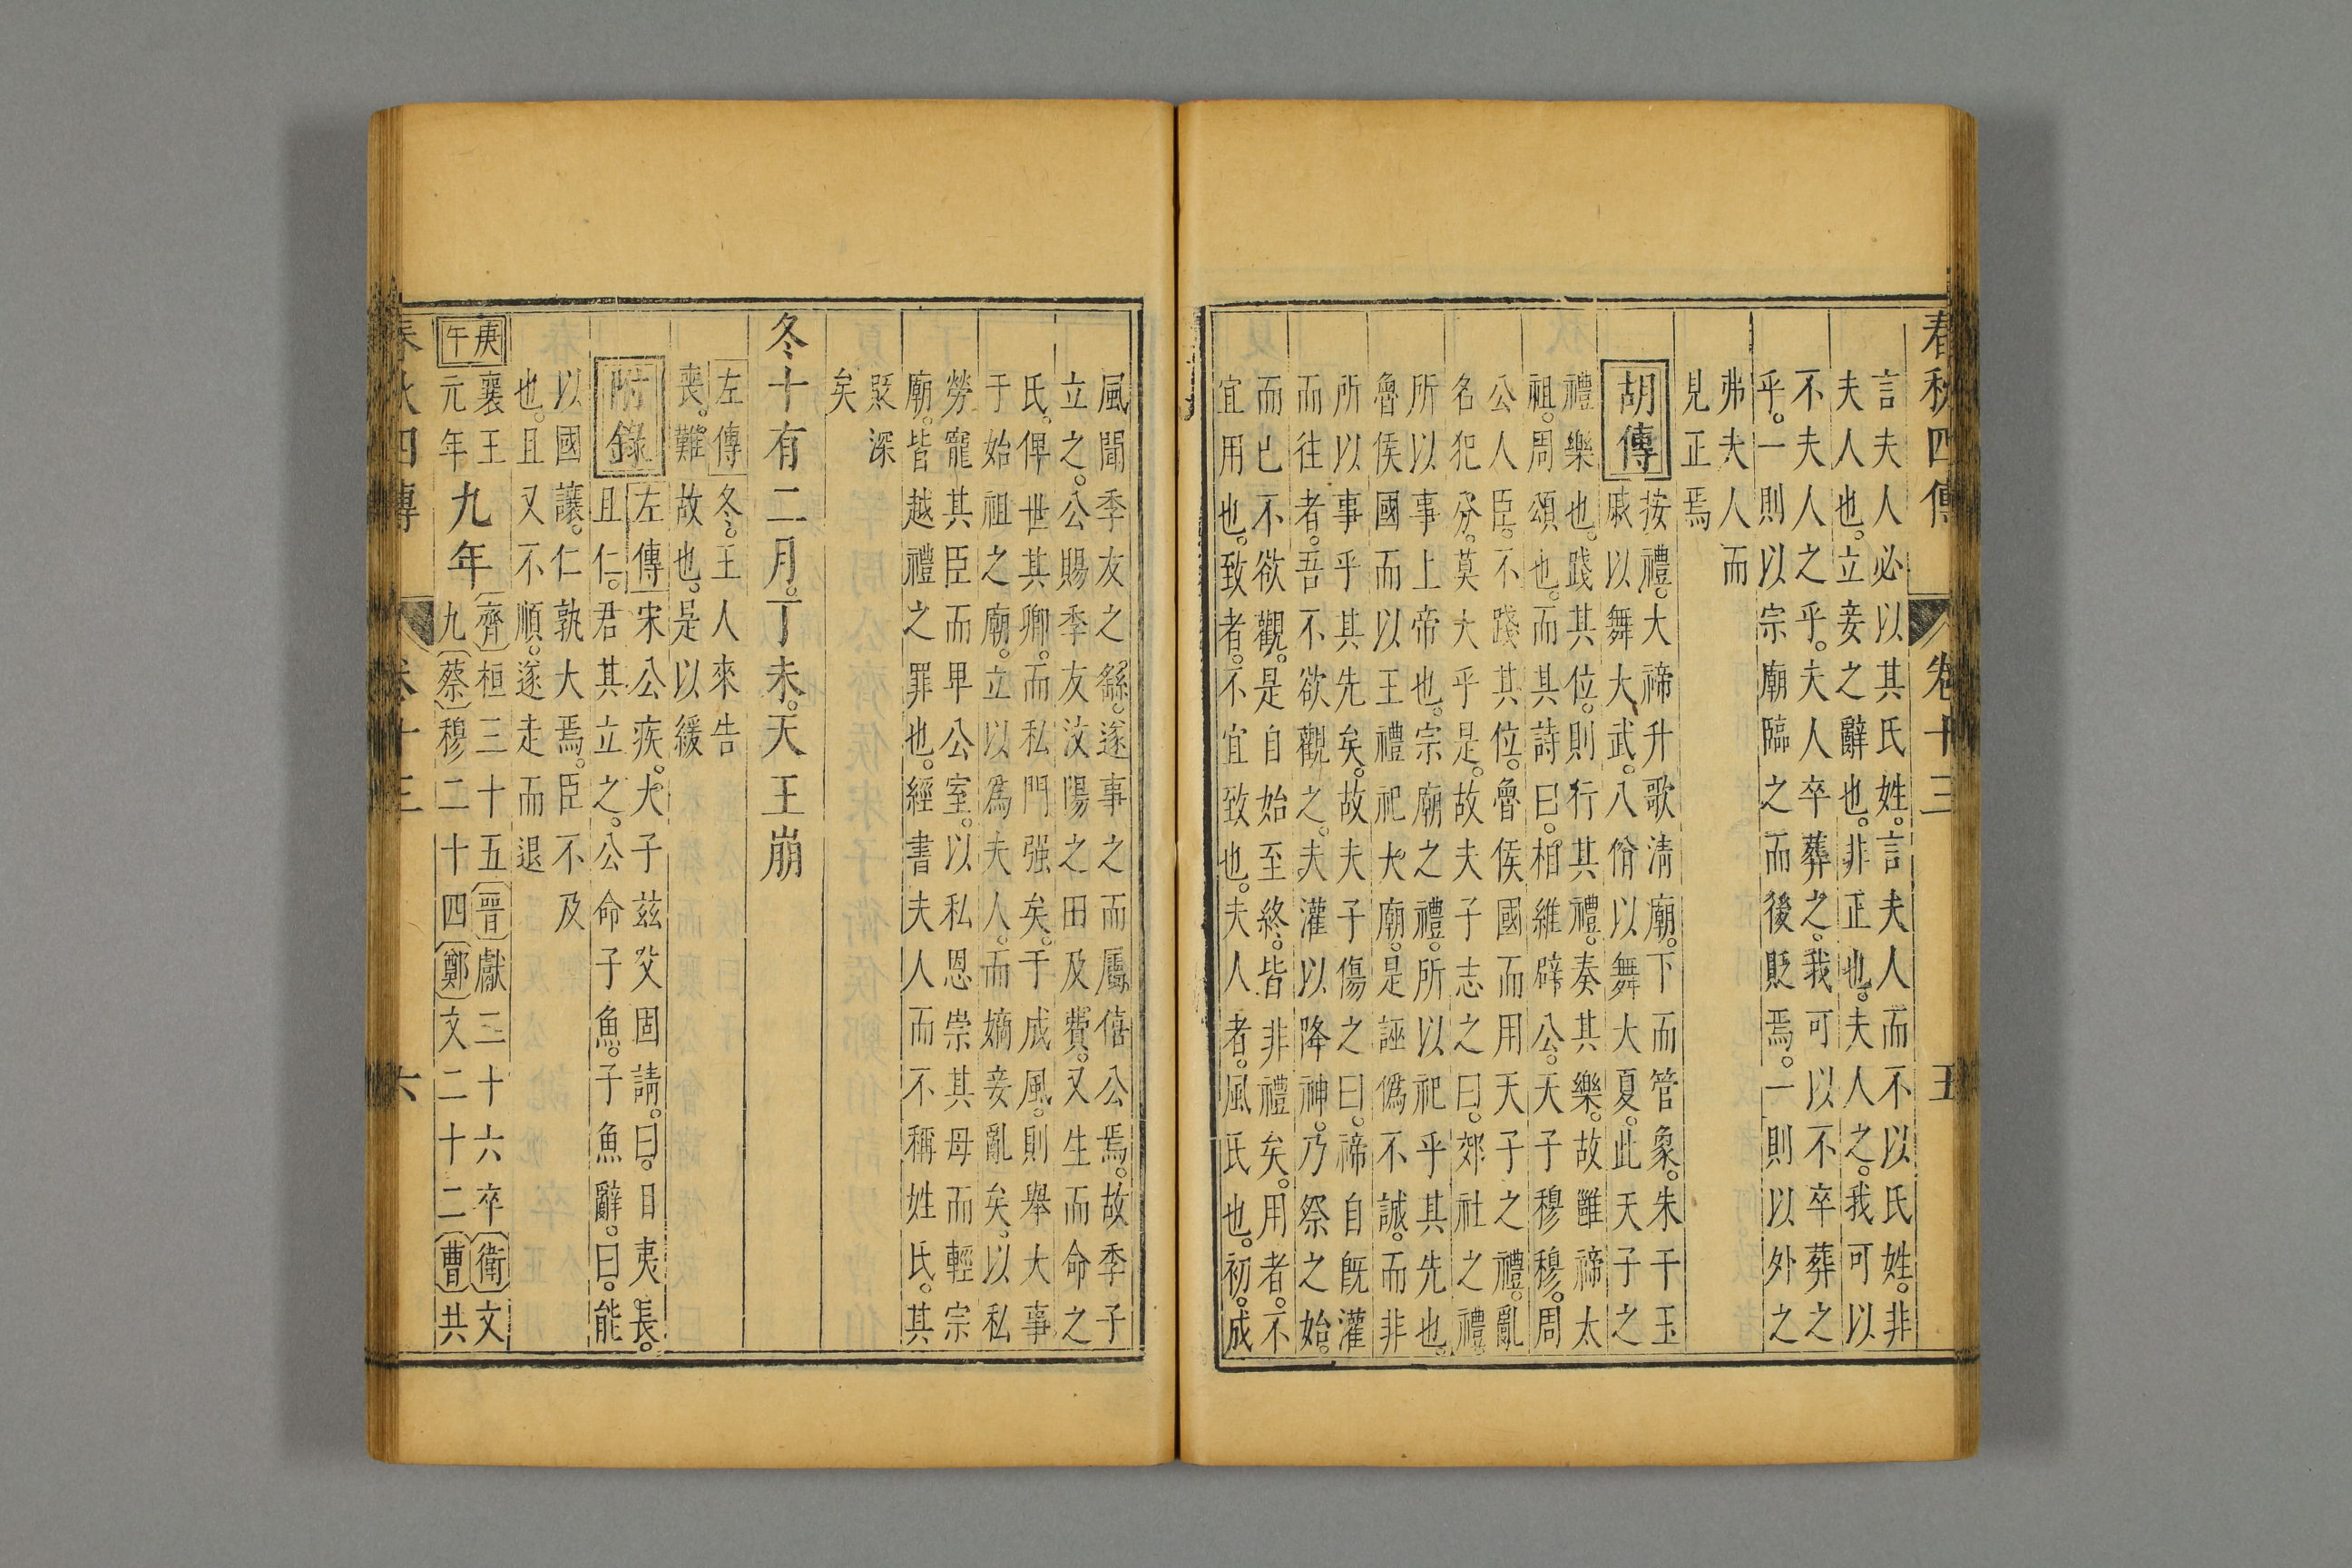 春秋四傳 卷十三 五
言夫人必以其氏姓。言夫人而不以氏姓。非
夫人也。立妾之辭也。非正也。夫人之。我可以
不夫人之乎。夫人卒葬之。我可以不卒葬之
乎。一則以宗廟臨之而後貶焉。一則以外之
弗夫人而
見正焉
胡傳
按禮。大禘升歌清廟。下而管象。朱干玉
戚以舞大武。八佾以舞大夏。此天子之
禮樂也。踐其位。則行其禮。奏其樂。故雖禘太
祖。周頌也。而其詩曰。相維辟公。天子穆穆。周
公人臣。不踐其位。魯侯國而用天子之禮。亂
名犯分。莫大乎是。故夫子志之曰。郊社之禮。
所以事上帝也。宗廟之禮。所以祀乎其先也。
魯侯國而以王禮祀大廟。是誣偽不誠。而非
所以事乎其先矣。故夫子傷之曰。禘自既灌
而往者。吾不欲觀之。夫灌以降神。乃祭之始。
而已不欲觀。是自始至終。皆非禮矣。用者。不
宜用也。致者。不宜致也。夫人者。風氏也。初。成
風聞季友之繇。遂事之而屬僖公焉。故季子
立之。公賜季友汶陽之田及費。又生而命之
氏。俾世其卿。而私門强矣。于成風。則舉大事
于始祖之廟。立以爲夫人。而嫡妾亂矣。以私
勞寵其臣而卑公室。以私恩崇其母而輕宗
廟。皆越禮之罪也。經書夫人而不稱姓氏。其
貶深
矣
冬十有二月。丁未。天王崩
左傳 冬。王人來告
喪。難故也。是以緩
附錄
左傳 宋公疾。大子茲父固請。曰。目夷長。
且仁。君其立之。公命子魚。子魚辭。曰。能
以國讓。仁孰大焉。臣不及
也。且又不順。遂走而退
庚午
襄王
元年
九年
齊桓三十五 晉獻二十六卒 衛文
九 蔡穆二十四 鄭文二十二 曹共
春秋四傳 卷十三 六